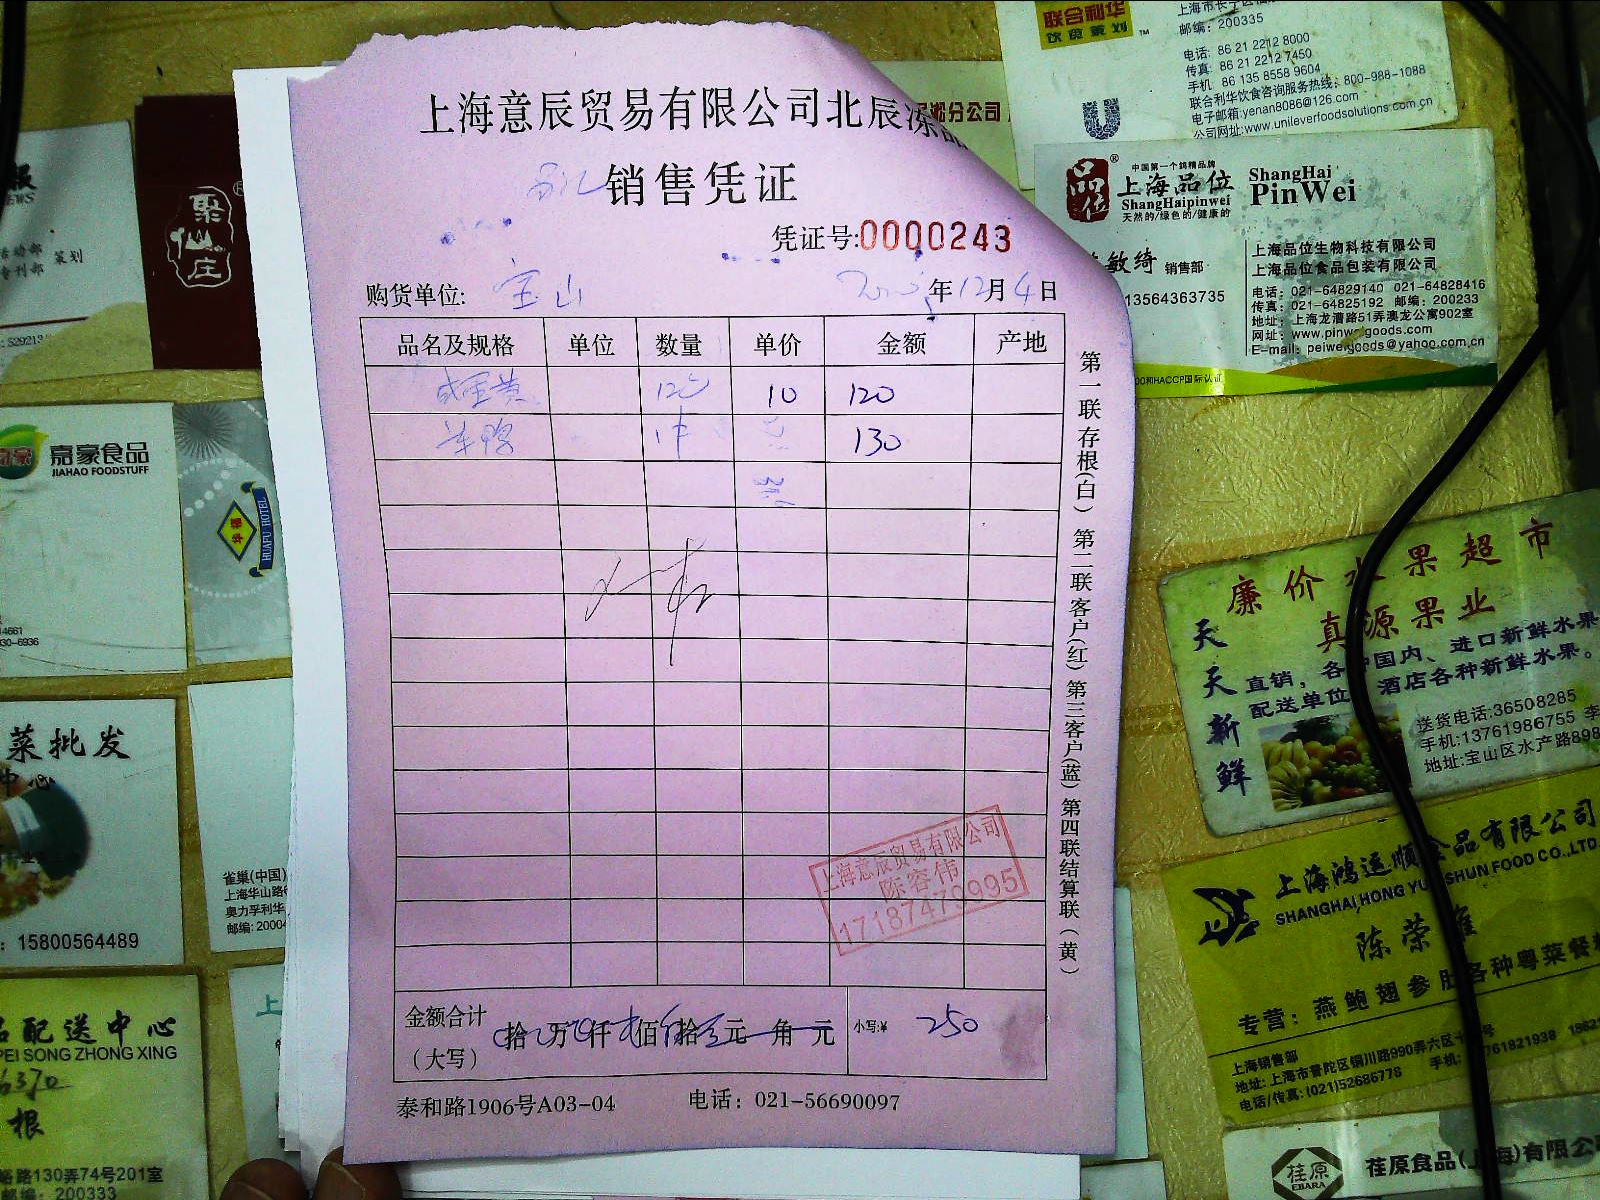 上海意辰贸易有限公司北辰冻品
淞分公司
销售凭证
凭证号:0000243
购货单位: 宝山
年12月4日
品名及规格 单位 数量 单价 金额 产地
10 120
130
第一联存根(白) 第二联客户(红) 第三客户(蓝) 第四联结算联(黄)
上海意辰贸易有限公司
陈容伟
17187470995
金额合计
(大写)
拾 万 仟 佰 拾 元 角 元
小写:¥ 250
泰和路1906号A03-04 电话: 021-56690097
联合利华
饮食策划™
邮编: 200335
电话: 86 21 2212 8000
传真: 86 21 2212 7450
手机: 86 135 8558 9604
联合利华饮食咨询服务热线: 800-988-1088
电子邮箱:yenan8086@126.com
公司网址:www.unileverfoodsolutions.com.cn
品位®
中国第一个鸽精品牌
上海品位
ShangHaipinwei
天然的/绿色的/健康的
ShangHai
PinWei
敏绮 销售部
13564363735
上海品位生物科技有限公司
上海品位食品包装有限公司
电话: 021-64829140 021-64828416
传真: 021-64825192 邮编: 200233
地址: 上海龙漕路51弄澳龙公寓902室
网址: www.pinweigoods.com
E-mail: peiweigoods@yahoo.com.cn
和HACCP国际认证
廉价水果超市
真源果业
天天新鲜
直销,各种国内、进口新鲜水果
配送单位 酒店各种新鲜水果。
送货电话:36508285
手机:13761986755 李
地址:宝山区水产路898
上海鸿运顺食品有限公司
SHANGHAI HONG YUN SHUN FOOD CO.,LTD.
陈荣
专营: 燕鲍翅参肚各种粤菜餐
上海销售部
地址: 上海市普陀区铜川路990弄六区十
电话/传真: (021)52686778 手机:
61821938
荏原
EBARA
荏原食品(上海)有限公
聚仙庄
活动部
专刊部 策划
嘉豪食品
JIAHAO FOODSTUFF
华福
HUAFU HOTEL
14661
30-6936
菜批发
中心
: 15800564489
雀巢(中国)
上海华山路
奥力孚利华
邮编: 2000
品配送中心
PEI SONG ZHONG XING
根
路130弄74号201室
邮编: 200333
上